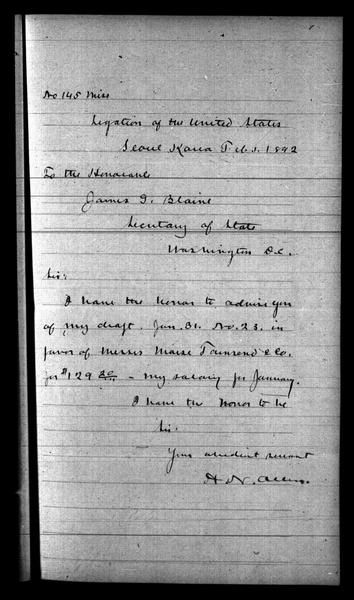 No 145 Miss
Legation of the United States
Seoul Korea Feb. 3. 1892
To the Honorable
James G. Blaine
Secretary of State
Washington D.C.
Sir:
I have the honor to advise you
of my draft. Jan. 31. No. 23. in
favor of Messrs Morse Townsend & Co.
for $129 — my salary for January.
I have the honor to be
Sir.
Your obedient servant
H. N. Allen.